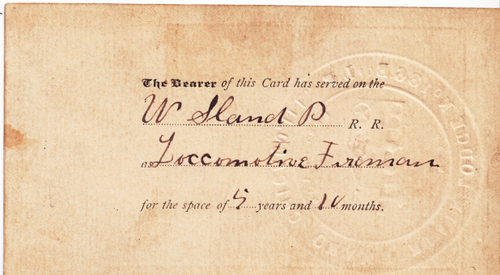 The Bearer of this Card has served on the
W Sland P R. R.
as Loccomotive Fireman
for the space of 5 years and 10 months.